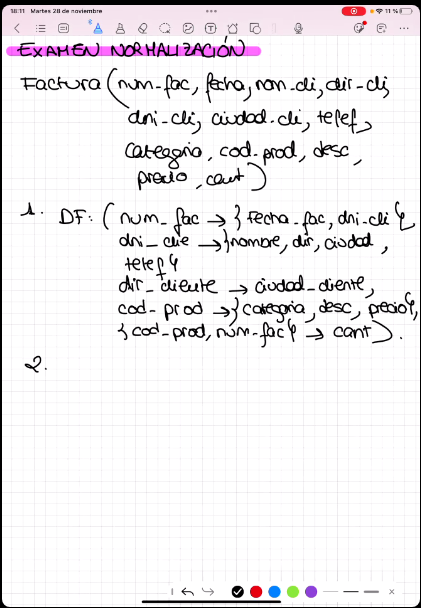 18:11 Martes 28 de noviembre
11 %
EXAMEN NORMALIZACIÓN
Factura (num-fac, fecha, nom-cli, dir-cli,
dni-cli, ciudad-cli, telef,
categoria, cod-prod, desc,
precio, cant)
1. DF: (num_fac → {fecha_fac, dni-cli},
dni_clie → {nombre, dir, ciudad,
telef}
dir_cliente → ciudad_cliente,
cod-prod → {categoria, desc, precio},
{cod-prod, num-fac} → cant).
2.